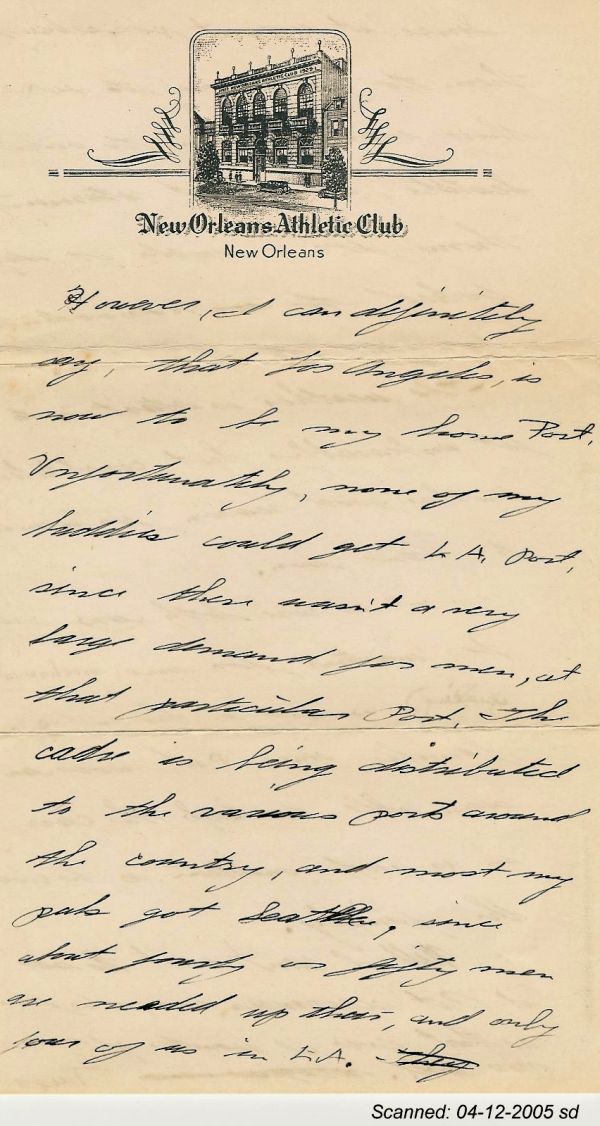 NEW ORLEANS ATHLETIC CLUB 1929
New Orleans Athletic Club
New Orleans
However, I can definitely
say, that Los Angeles, is
now to be my home Port.
Unfortunately, none of my
buddies could get L.A. Port,
since there wasn't a very
large demand for men, at
that particular Port. The
cadre is being distributed
to the various ports around
the country, and most my
pals got Seattle, since
about forty or fifty men
are needed up there, and only
four of us in L.A. They
Scanned: 04-12-2005 sd